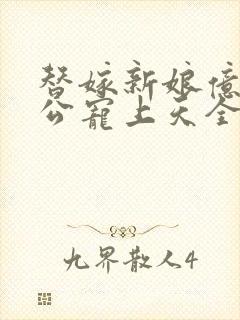 替嫁新娘亿
公宠上天全
九界散人4